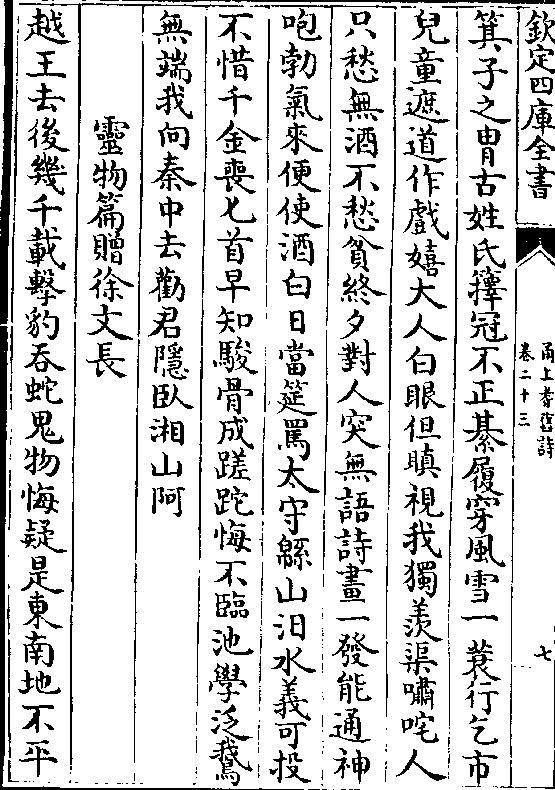 欽定四庫全書
甬上耆舊詩
卷二十三
七
箕子之胄古姓氏籜冠不正綦履穿風雪一蓑行乞市
兒童遮道作戲嬉大人白眼但瞋視我獨羨渠嘯咤人
只愁無酒不愁貧終夕對人突無語詩畫一發能通神
咆勃氣來便使酒白日當筵罵太守緜山汨水義可投
不惜千金喪匕首早知駿骨成蹉跎悔不臨池學泛鵞
無端我向秦中去勸君隱臥湘山阿
靈物篇贈徐文長
越王去後幾千載擊豹吞蛇鬼物悔疑是東南地不平